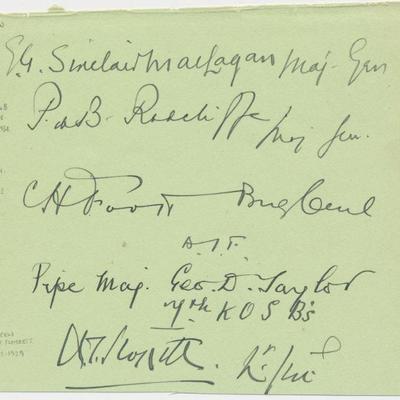 E.G. Sinclair MacLagan Maj-Gen
P. de B. Radcliffe Maj Gen.
C H Foott Brig Genl
A.I.F.
Pipe Maj. Geo. D. Taylor
7th K O S B's